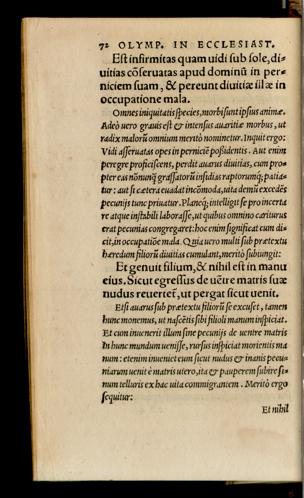 72 OLYMP. IN ECCLESIAST.
Est infirmitas quam uidi sub sole, di-
uitias cōseruatas apud dominū in per-
niciem suam, & pereunt diuitiæ illæ in
occupatione mala.
Omnes iniquitatis species, morbi sunt ipsius animæ.
Adeò uero grauis est & intensus auaritiæ morbus, ut
radix malorū omnium meritò nominetur. Inquit ergo:
Vidi asseruatas opes in perniciē poßidentis. Aut enim
peregre proficiscens, perdit auarus diuitias, cum pro-
pter eas nōnunq̃ grassatorū insidias raptorumq́; patia-
tur: aut si cætera euadat incōmoda, uita demū excedēs
pecunijs tunc priuatur. Plancq́; intelligit se pro incerta
re atque instabili laborasse, ut quibus omnino cariturus
erat pecunias congregaret: hoc enim significat cum di-
cit, in occupatiōe mala. Quia uero multi sub prætextu
hæredum filiorū diuitias cumulant, meritò subiungit:
Et genuit filium, & nihil est in manu
eius. Sicut egressus de uētre matris suæ
nudus reuertet, ut pergat sicut uenit.
Etsi auarus sub prætextu filiorū se excuset, tamen
hunc monemus, ut nascētis sibi filioli manum inspiciat.
Et cum inuenerit illum sine pecunijs de uentre matris
in hunc mundum uenisse, rursus inspiciat morientis ma
num: etenim inueniet eum sicut nudus & inanis pecu-
niarum uenit è matris utero, ita & pauperem subire si-
num telluris ex hac uita commigrantem. Meritò ergo
sequitur:
Et nihil